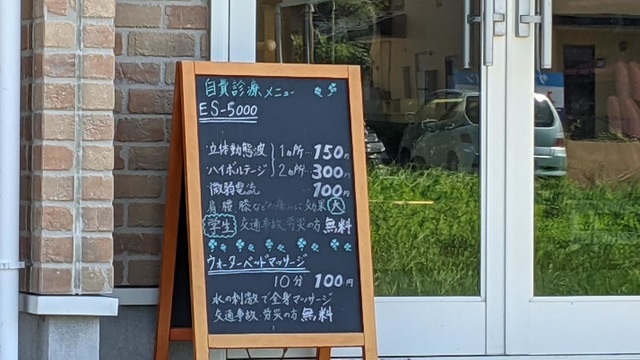 自費診療メニュー
ES-5000
立体動態波 1ヵ所…150円
ハイボルテージ 2ヵ所…300円
微弱電流 …100円
肩 腰 膝などの痛みに効果 大
学生 交通事故・労災の方 無料
ウォーターベッドマッサージ
10分 100円
水の刺激で全身マッサージ
交通事故・労災の方 無料